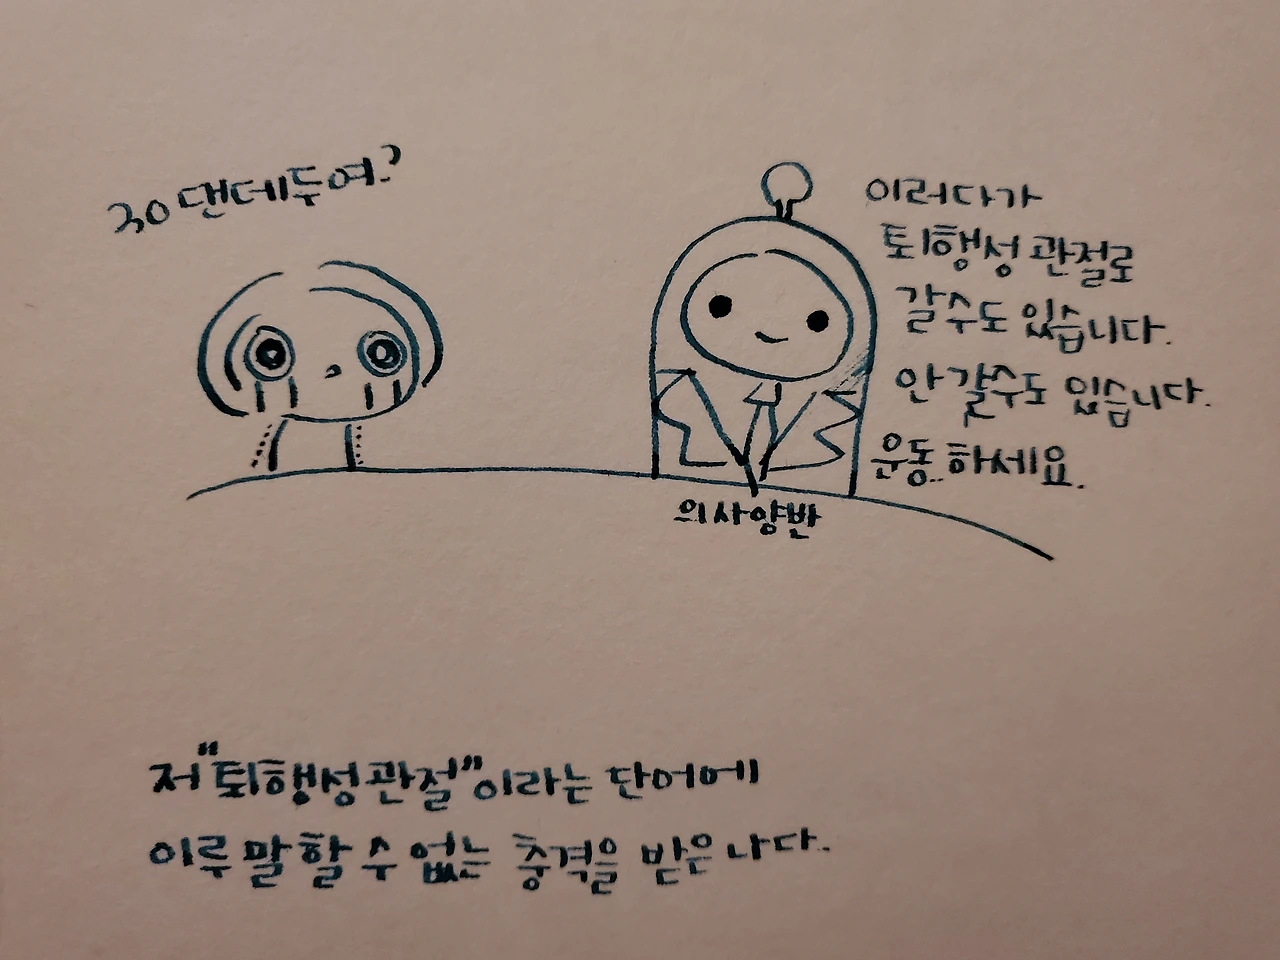 30댄데두여?
이러다가
퇴행성 관절로
갈수도 있습니다.
안 갈수도 있습니다.
운동하세요.
의사양반
저 "퇴행성관절"이라는 단어에
이루 말할 수 없는 충격을 받은 나다..